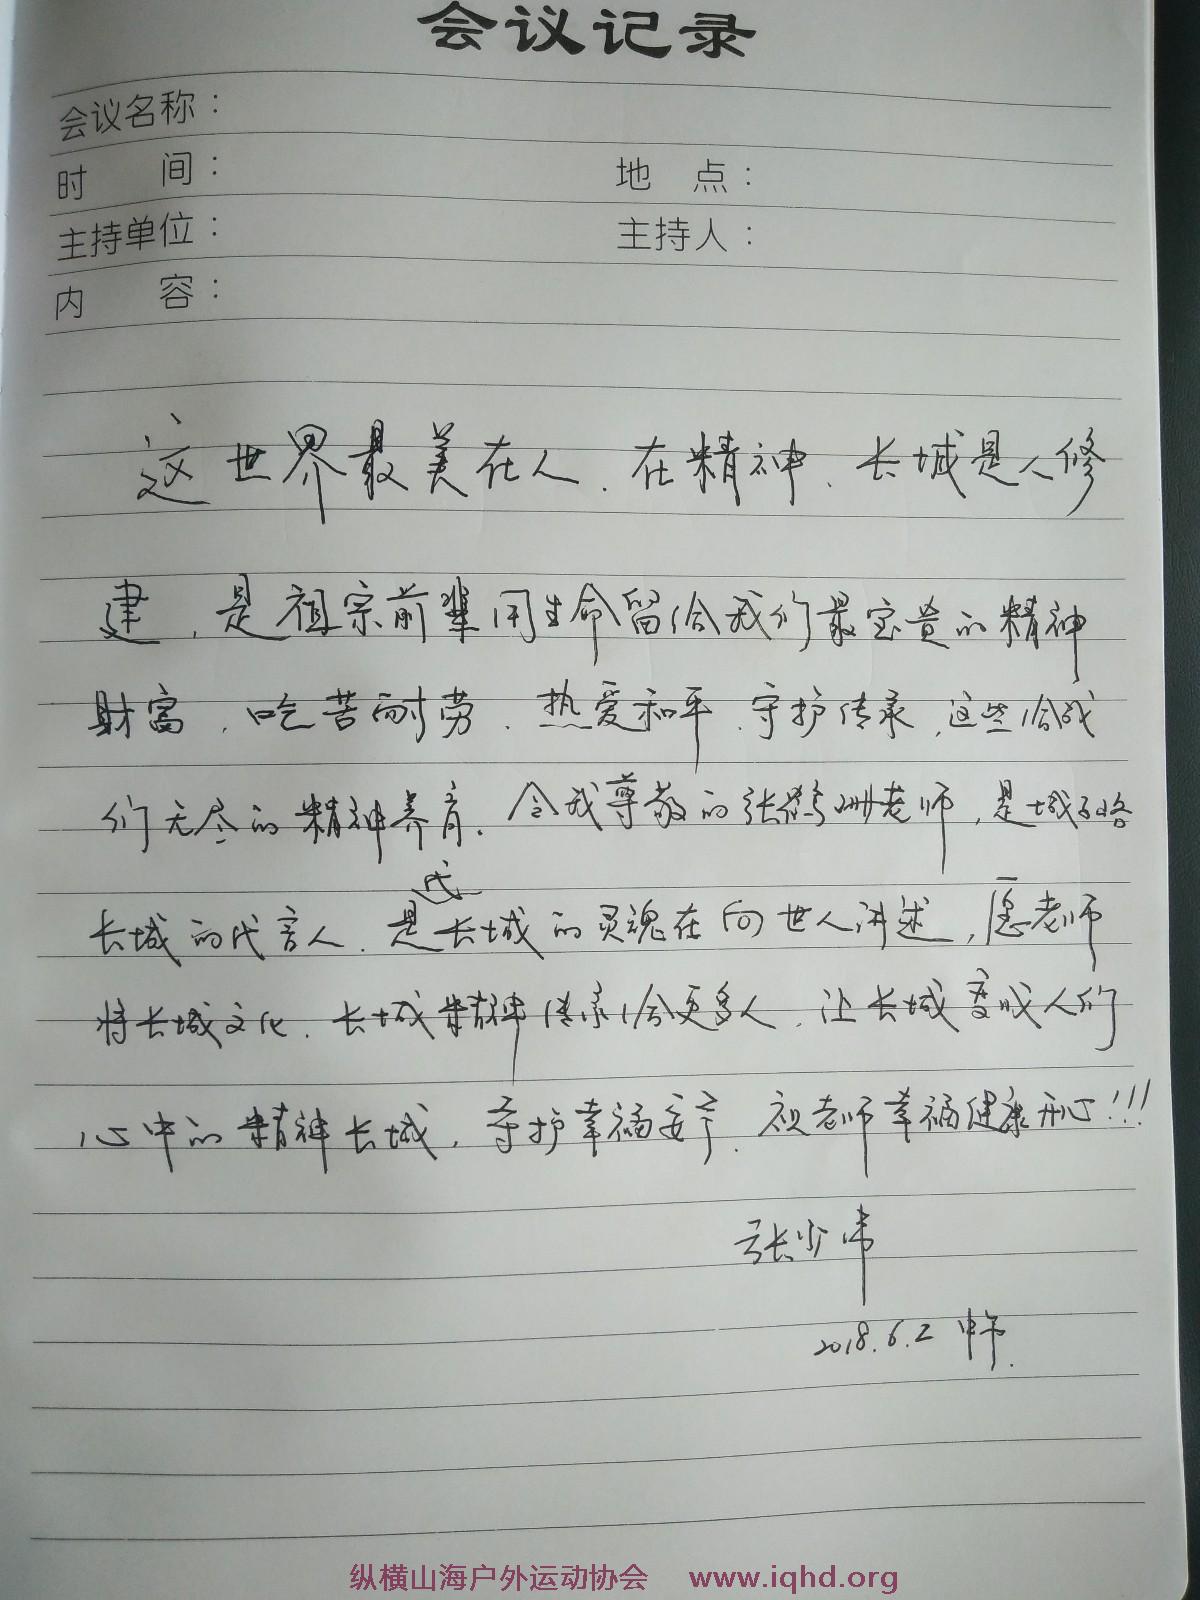 会议记录
会议名称：
时　间：　地　点：
主持单位：　主持人：
内　容：
这世界最美在人．在精神．长城是人修
建，是祖宗前辈用生命留给我们最宝贵的精神
财富，吃苦耐劳．热爱和平．守护传承，这些给我
们无尽的精神养育．令我尊敬的张鹤珊老师，是城子峪
长城的代言人．是代长城的灵魂在向世人讲述，愿老师
将长城文化．长城精神传承给更多人．让长城变成人们
心中的精神长城．守护幸福安宁．祝老师幸福健康开心!!!
张少伟
2018.6.2 中午.
纵横山海户外运动协会 www.iqhd.org